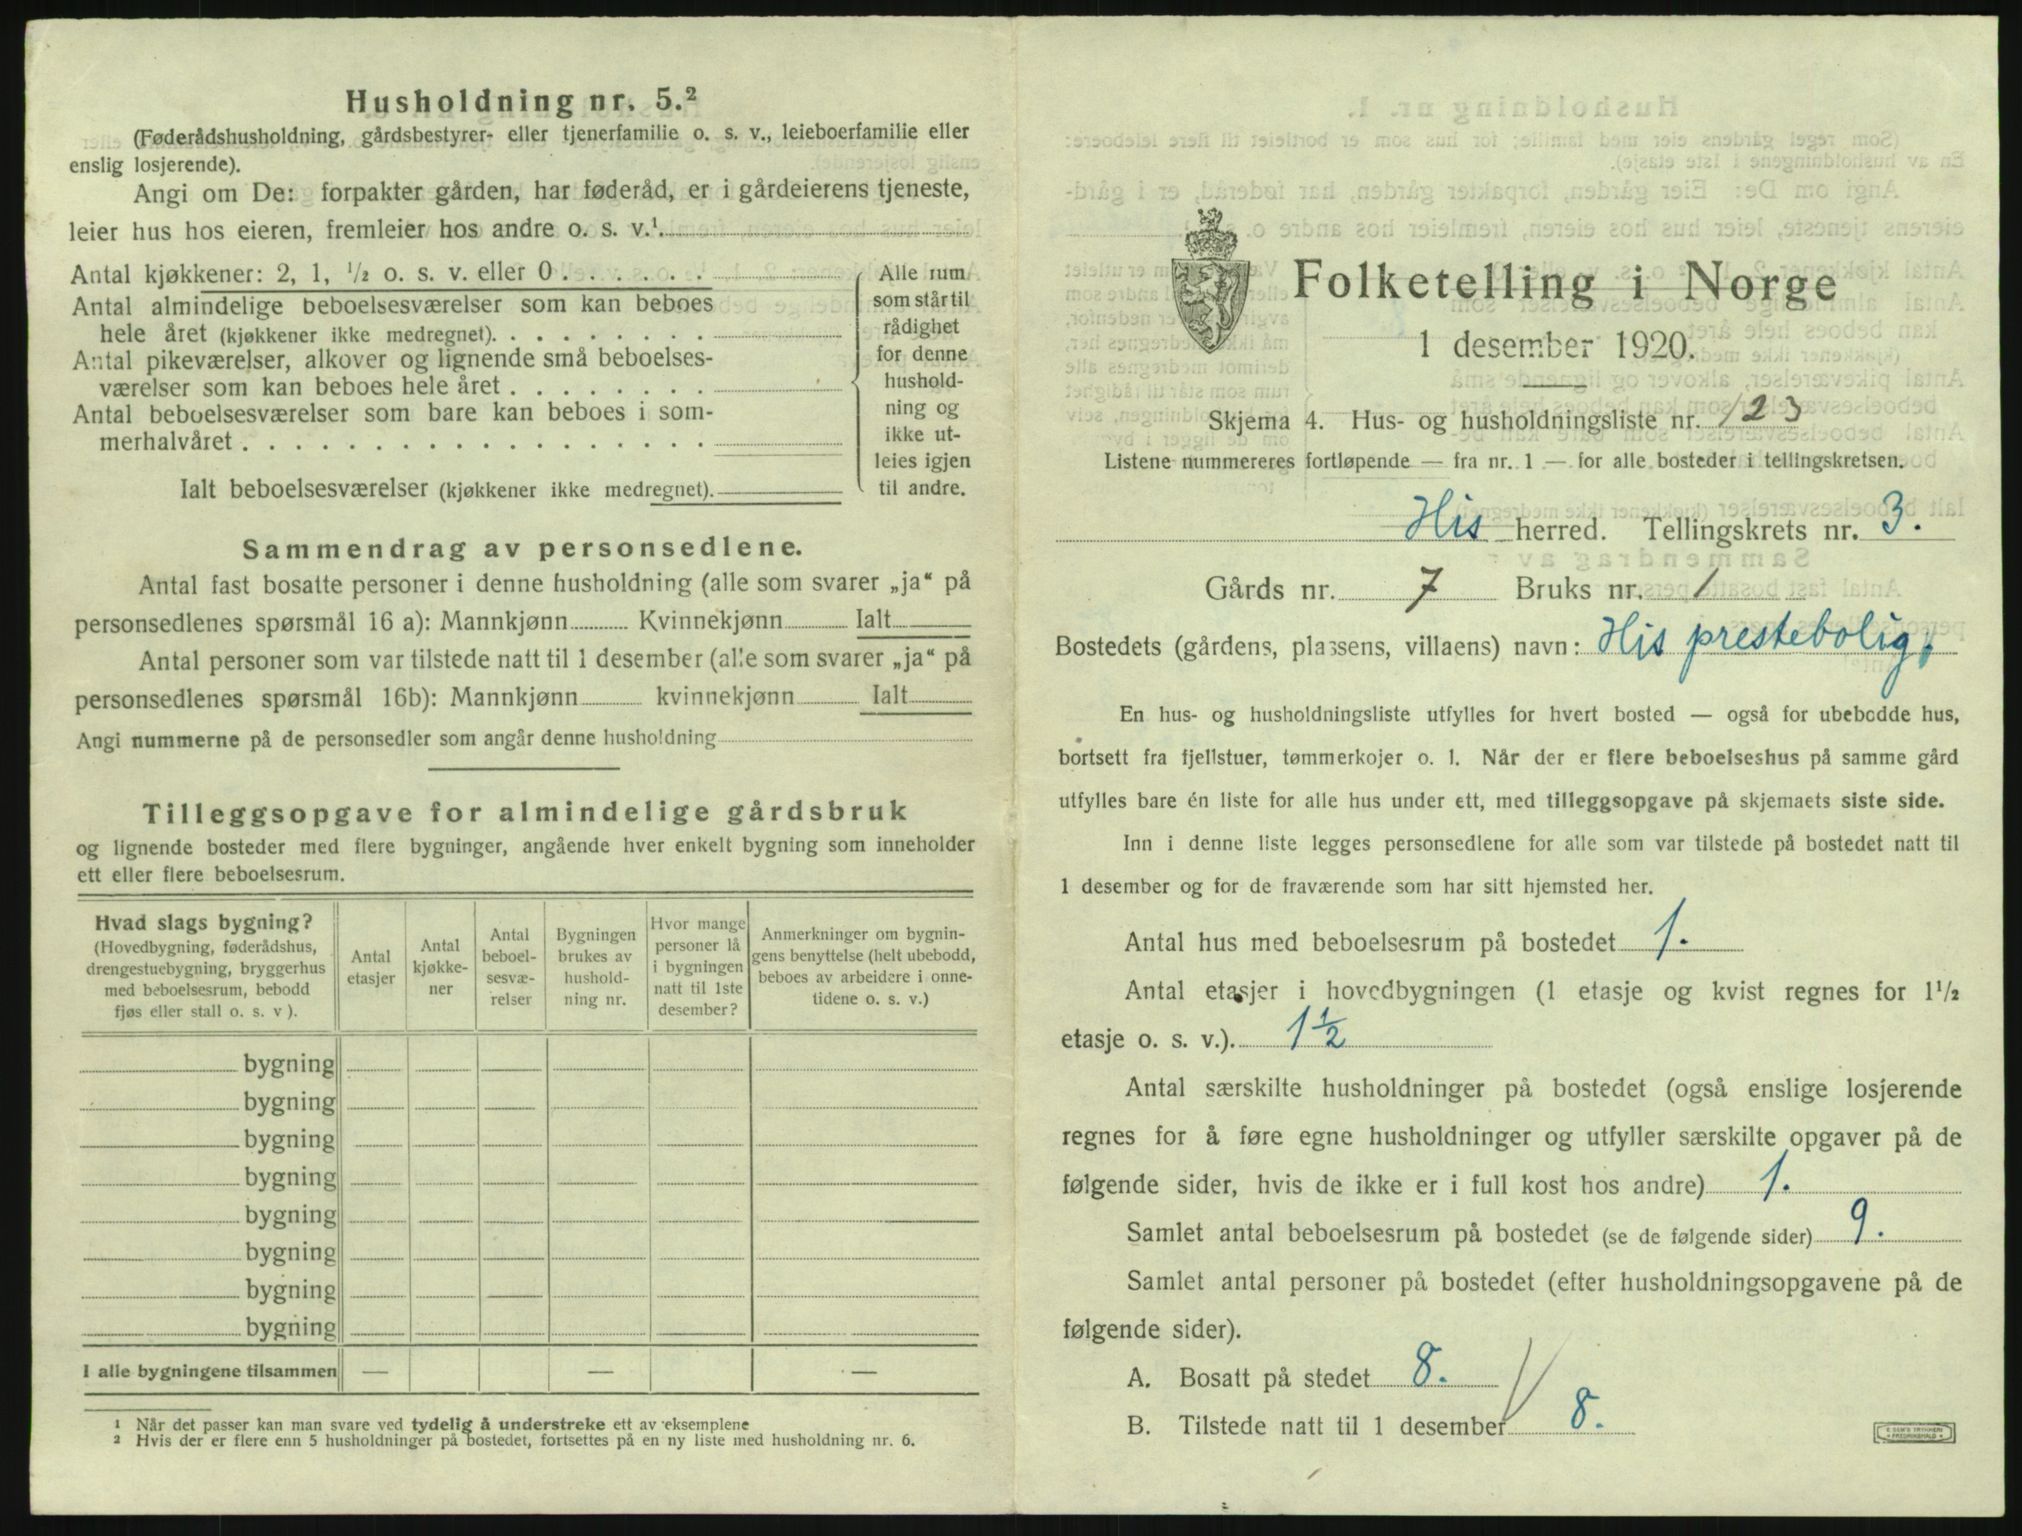 Husholdning nr. 5.²
(Føderådshusholdning, gårdsbestyrer- eller tjenerfamilie o. s. v., leieboerfamilie eller
enslig losjerende).
Angi om De: forpakter gården, har føderåd, er i gårdeierens tjeneste,
leier hus hos eieren, fremleier hos andre o. s. v.¹
Antal kjøkkener: 2, 1, ½ o. s. v. eller 0
Antal almindelige beboelsesværelser som kan beboes
hele året (kjøkkener ikke medregnet).
Antal pikeværelser, alkover og lignende små beboelses-
værelser som kan beboes hele året
Antal beboelsesværelser som bare kan beboes i som-
merhalvåret
Ialt beboelsesværelser (kjøkkener ikke medregnet).
Alle rum
som står til
rådighet
for denne
hushold-
ning og
ikke ut-
leies igjen
til andre.
Sammendrag av personsedlene.
Antal fast bosatte personer i denne husholdning (alle som svarer „ja“ på
personsedlenes spørsmål 16 a): Mannkjønn Kvinnekjønn Ialt
Antal personer som var tilstede natt til 1 desember (alle som svarer „ja“ på
personsedlenes spørsmål 16b): Mannkjønn kvinnekjønn Ialt
Angi nummerne på de personsedler som angår denne husholdning
Tilleggsopgave for almindelige gårdsbruk
og lignende bosteder med flere bygninger, angående hver enkelt bygning som inneholder
ett eller flere beboelsesrum.
Hvad slags bygning?
(Hovedbygning, føderådshus,
drengestuebygning, bryggerhus
med beboelsesrum, bebodd
fjøs eller stall o. s. v ).
Antal
etasjer
Antal
kjøkke-
ner
Antal
beboel-
sesvæ-
relser
Bygningen
brukes av
hushold-
ning nr.
Hvor mange
personer lå
i bygningen
natt til 1ste
desember?
Anmerkninger om bygnin-
gens benyttelse (helt ubebodd,
beboes av arbeidere i onne-
tidene o. s. v.)
bygning
bygning
bygning
bygning
bygning
bygning
bygning
bygning
I alle bygningene tilsammen — — —
¹ Når det passer kan man svare ved tydelig å understreke ett av eksemplene
² Hvis der er flere enn 5 husholdninger på bostedet, fortsettes på en ny liste med husholdning nr. 6.
Folketelling i Norge
1 desember 1920.
Skjema 4. Hus- og husholdningsliste nr. 123
Listene nummereres fortløpende — fra nr. 1 — for alle bosteder i tellingskretsen.
His herred. Tellingskrets nr. 3.
Gårds nr. 7 Bruks nr. 1
Bostedets (gårdens, plassens, villaens) navn: His prestebolig,
En hus- og husholdningsliste utfylles for hvert bosted — også for ubebodde hus,
bortsett fra fjellstuer, tømmerkojer o. l. Når der er flere beboelseshus på samme gård
utfylles bare én liste for alle hus under ett, med tilleggsopgave på skjemaets siste side.
Inn i denne liste legges personsedlene for alle som var tilstede på bostedet natt til
1 desember og for de fraværende som har sitt hjemsted her.
Antal hus med beboelsesrum på bostedet 1.
Antal etasjer i hovedbygningen (1 etasje og kvist regnes for 1½
etasje o. s. v.). 1½
Antal særskilte husholdninger på bostedet (også enslige losjerende
regnes for å føre egne husholdninger og utfyller særskilte opgaver på de
følgende sider, hvis de ikke er i full kost hos andre) 1.
Samlet antal beboelsesrum på bostedet (se de følgende sider) 9.
Samlet antal personer på bostedet (efter husholdningsopgavene på de
følgende sider).
A. Bosatt på stedet 8.
B. Tilstede natt til 1 desember 8.